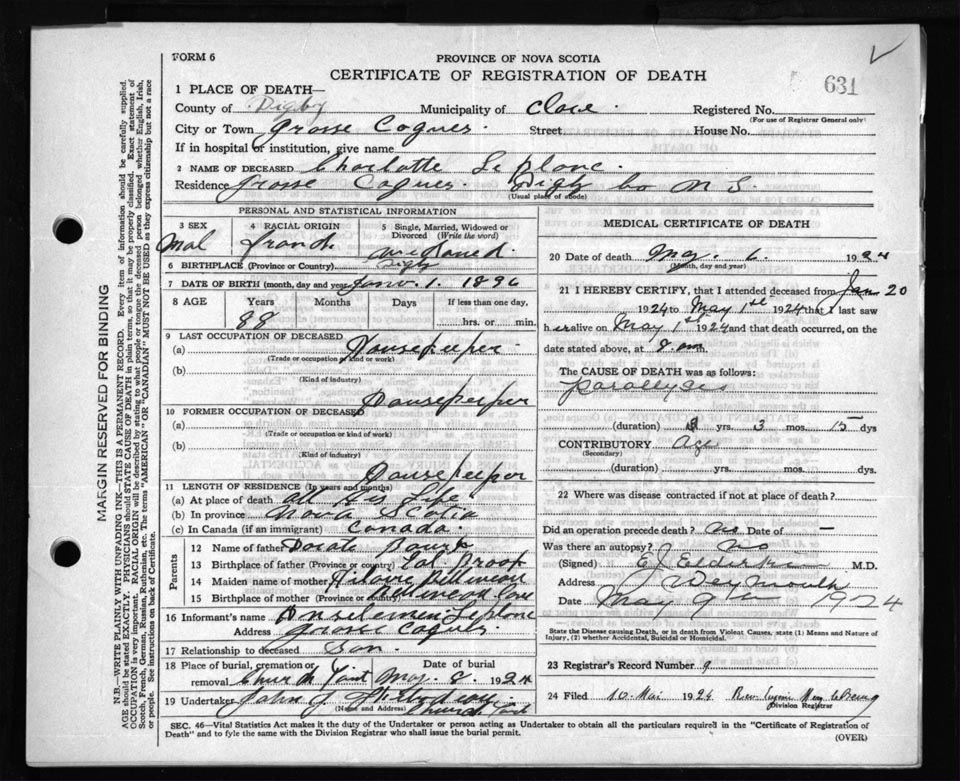 FORM 6
PROVINCE OF NOVA SCOTIA
CERTIFICATE OF REGISTRATION OF DEATH
631
1 PLACE OF DEATH—
County of Digby Municipality of Clare. Registered No.
(For use of Registrar General only)
City or Town Grosse Coques. Street House No.
If in hospital or institution, give name
2 NAME OF DECEASED Charlotte Le Blanc.
Residence Grosse Coques. Digby Co N S.
(Usual place of abode)
PERSONAL AND STATISTICAL INFORMATION
3 SEX
Mal
4 RACIAL ORIGIN
French
5 Single, Married, Widowed or Divorced (Write the word)
Widowed.
6 BIRTHPLACE (Province or Country) Digby
7 DATE OF BIRTH (month, day and year) 1. 1896
8 AGE Years Months Days If less than one day,
88 hrs. or min.
9 LAST OCCUPATION OF DECEASED
(a) Housekeeper.
(Trade or occupation or kind or work)
(b)
(Kind of industry)
10 FORMER OCCUPATION OF DECEASED Housekeeper
(a)
(Trade or occupation or kind of work)
(b)
(Kind of industry)
Housekeeper
11 LENGTH OF RESIDENCE (In years and months)
(a) At place of death all His Life
(b) In province Nova Scotia
(c) In Canada (if an immigrant) Canada.
Parents
12 Name of father
13 Birthplace of father (Province or Country)
14 Maiden name of mother
15 Birthplace of mother (Province or Country) Belliveau Cove
16 Informant's name Leblanc
Address Grosse Coques.
17 Relationship to deceased Son.
18 Place of burial, cremation or removal Church Point Date of burial May. 8. 1924
19 Undertaker John J.
(Name and Address) Church Point
MEDICAL CERTIFICATE OF DEATH
20 Date of death May. 6. 1924
(Month, day and year)
21 I HEREBY CERTIFY, that I attended deceased from Jan 20
1924 to May 1st 1924 that I last saw
her alive on May 1st 1924 and that death occurred, on the
date stated above, at m.
The CAUSE OF DEATH was as follows:
Parallyces
(duration) yrs. 3 mos. 15 dys
CONTRIBUTORY Age
(Secondary)
(duration) yrs. mos. dys.
22 Where was disease contracted if not at place of death?
Did an operation precede death? No Date of —
Was there an autopsy? No
(Signed) E J Elderkin M.D.
Address Weymouth
Date May 9th 1924
State the Disease Causing Death, or in death from Violent Causes, state (1) Means and Nature of
Injury, (2) whether Accidental, Suicidal or Homicidal.
23 Registrar's Record Number 9
24 Filed 10 Mai 1924
Division Registrar
SEC. 46—Vital Statistics Act makes it the duty of the Undertaker or person acting as Undertaker to obtain all the particulars required in the "Certificate of Registration of
Death" and to fyle the same with the Division Registrar who shall issue the burial permit.
(OVER)
MARGIN RESERVED FOR BINDING
N.B.—WRITE PLAINLY WITH UNFADING INK—THIS IS A PERMANENT RECORD. Every item of information should be carefully supplied.
AGE should be stated EXACTLY. PHYSICIANS should STATE CAUSE OF DEATH in plain terms, so that it may be properly classified. Exact statement of
OCCUPATION is very important. RACIAL ORIGIN will be described by stating to what people or tongue the deceased person belonged whether English, Irish,
Scotch, French, German, Russian, Ruthenian, etc. The terms "AMERICAN" OR "CANADIAN" MUST NOT BE USED as they express citizenship but not a race
or people. See instructions on back of Certificate.